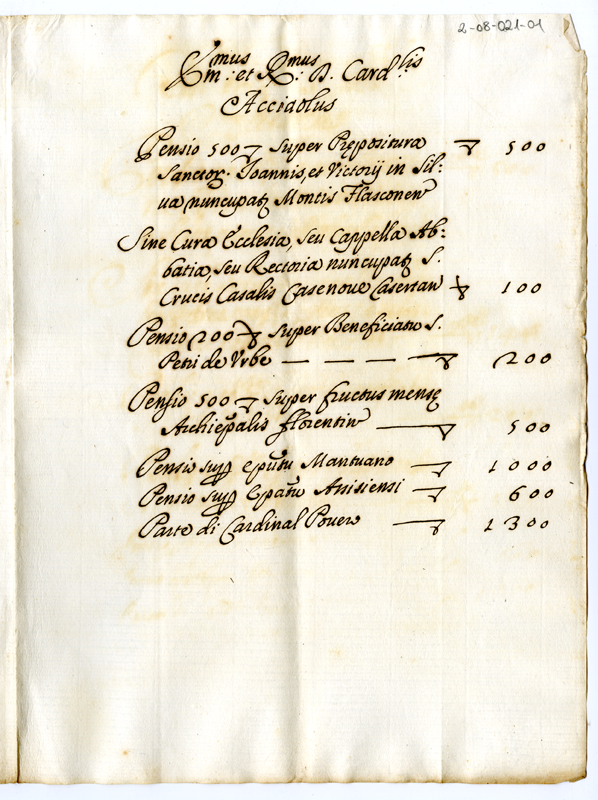 2-08-021-01
Em:mus et R:mus D. Card:lis
Acciaolus
Pensio 500 ▽ super Prępositura ▽ 500
Sanctor. Joannis, et Victorij in Sil:
ua nuncupat Montis Flasconen
Sine Cura Ecclesia, seu Cappella Ab:
batia, seu Rectoria nuncupat S.
Crucis Casalis Casenoue Casertan ▽ 100
Pensio 200 ▽ super Beneficiatu S.
Petri de Vrbe — — — — ▽ 200
Pensio 500 ▽ super fructus mensę
Archiepalis florentin — ▽ 500
Pensio sup eputu Mantuano — ▽ 1000
Pensio sup Epatu Assisiensi — ▽ 600
Parte di Cardinal Pouero — ▽ 1300